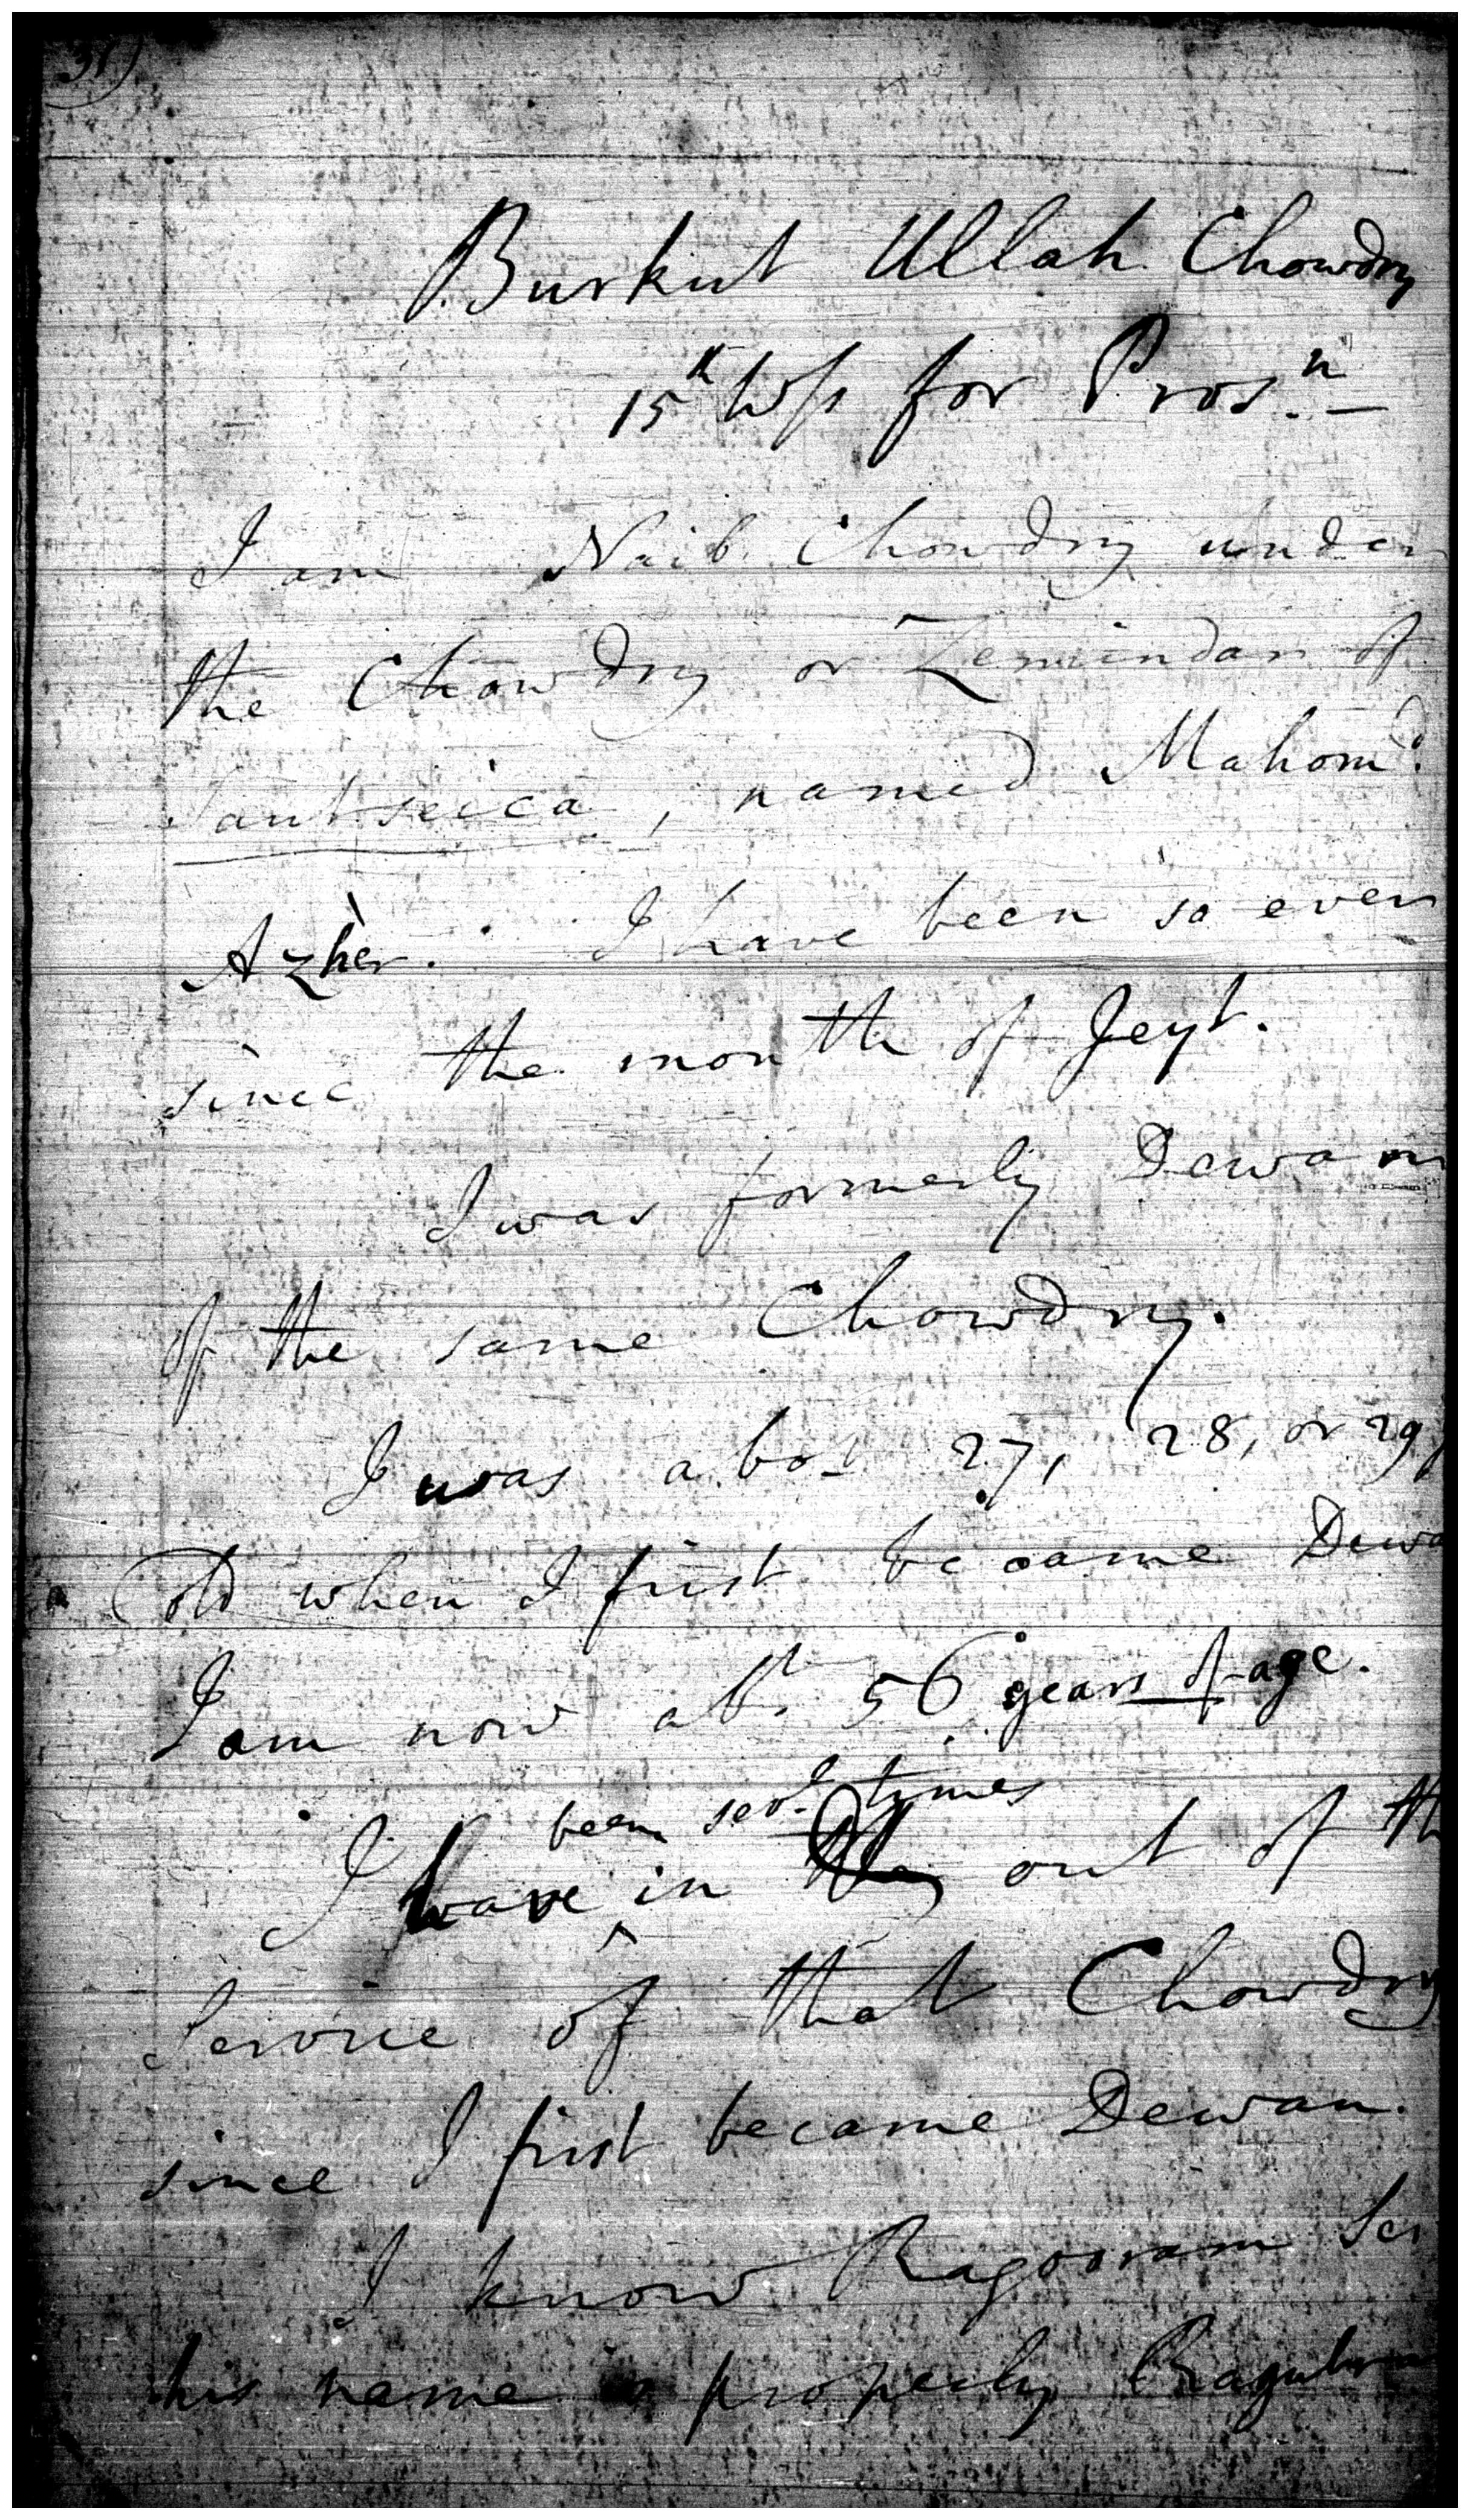 31)
Burkut Ullah Chowdry
15th Wss for Prosn
I am Naib Chowdry under
the Chowdry or Zemindar of
, named Mahomd
Azher. I have been so ever
since the month of Jeyt.
I was formerly Dewan
of the same Chowdry.
I was abot 27, 28, or 29
old when I first became Dewa
I am now abt 56 years of age.
been sevl times
I have in out of th
Service of that Chowdry
since I first became Dewan.
I know Ragooram Sei
his name is properly